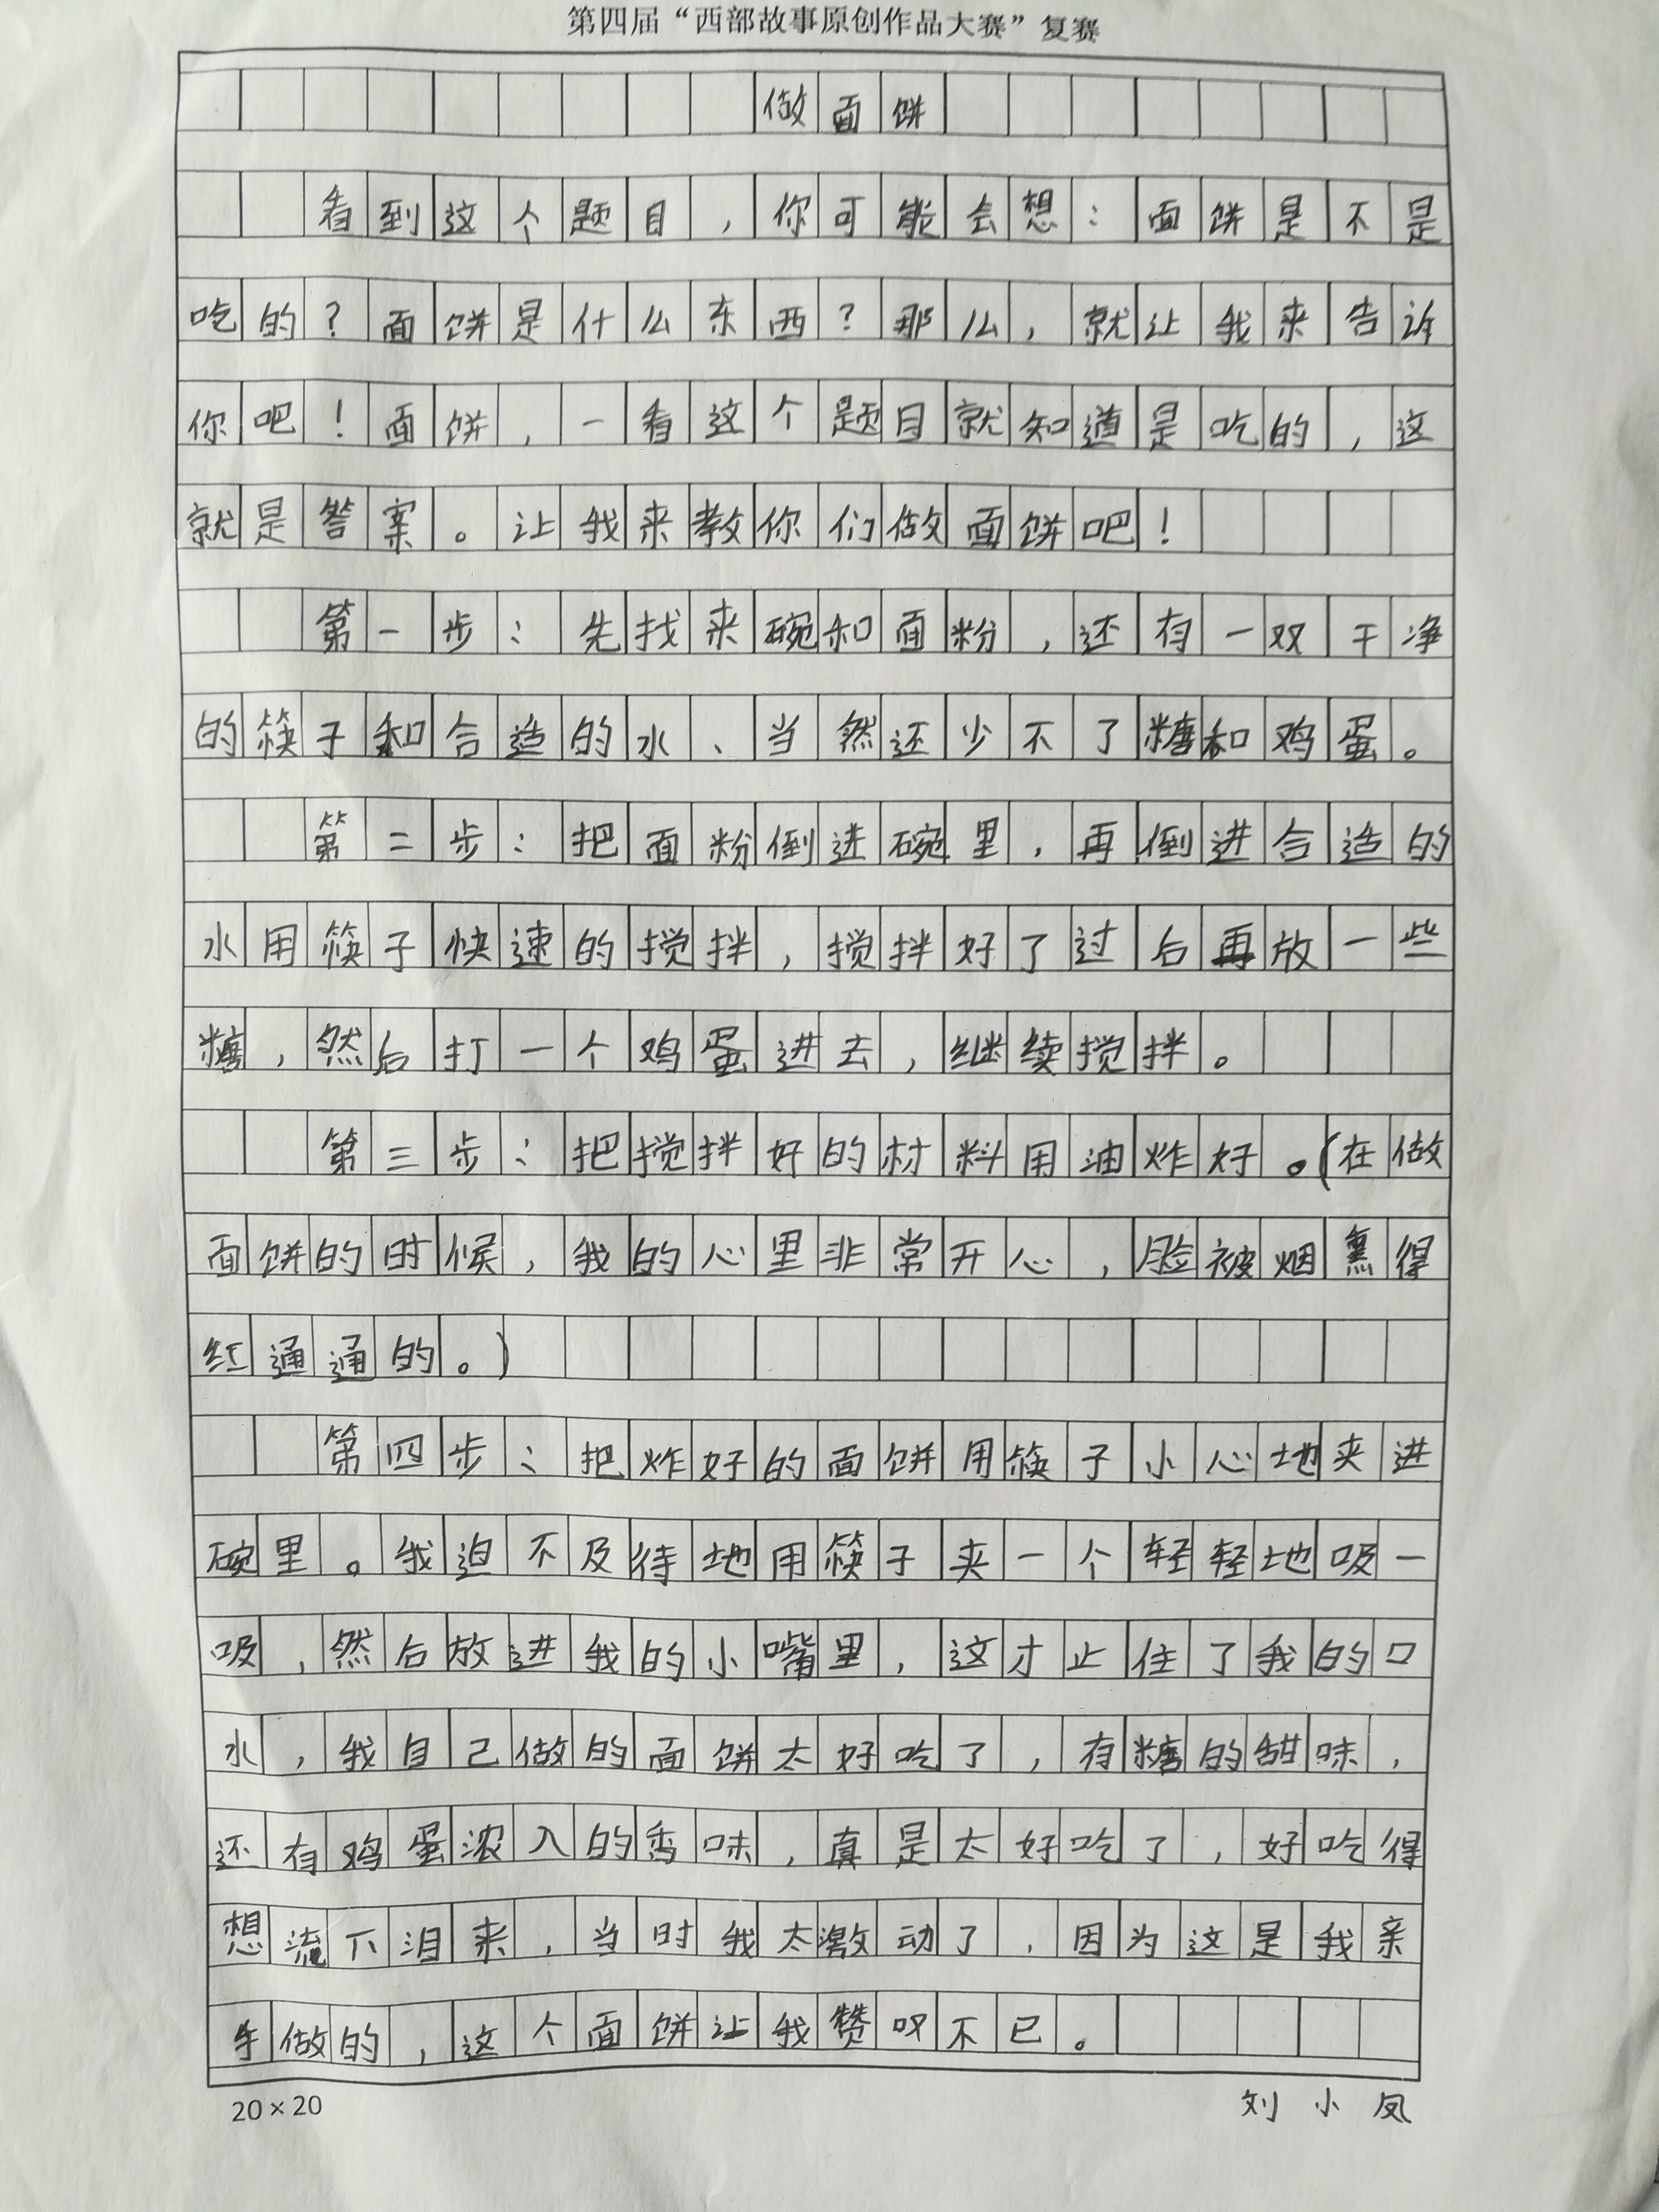 第四届“西部故事原创作品大赛”复赛
做面饼
看到这个题目，你可能会想：面饼是不是
吃的？面饼是什么东西？那么，就让我来告诉
你吧！面饼，一看这个题目就知道是吃的，这
就是答案。让我来教你们做面饼吧！
第一步：先找来碗和面粉，还有一双干净
的筷子和合造的水、当然还少不了糖和鸡蛋。
第二步：把面粉倒进碗里，再倒进合造的
水用筷子快速的搅拌，搅拌好了过后再放一些
糖，然后打一个鸡蛋进去，继续搅拌。
第三步：把搅拌好的材料用油炸好。(在做
面饼的时候，我的心里非常开心，脸被烟熏得
红通通的。)
第四步：把炸好的面饼用筷子小心地夹进
碗里。我迫不及待地用筷子夹一个轻轻地吸一
吸，然后放进我的小嘴里，这才止住了我的口
水，我自己做的面饼太好吃了，有糖的甜味，
还有鸡蛋浓入的香味，真是太好吃了，好吃得
想流下泪来，当时我太激动了，因为这是我亲
手做的，这个面饼让我赞叹不已。
20×20
刘小凤